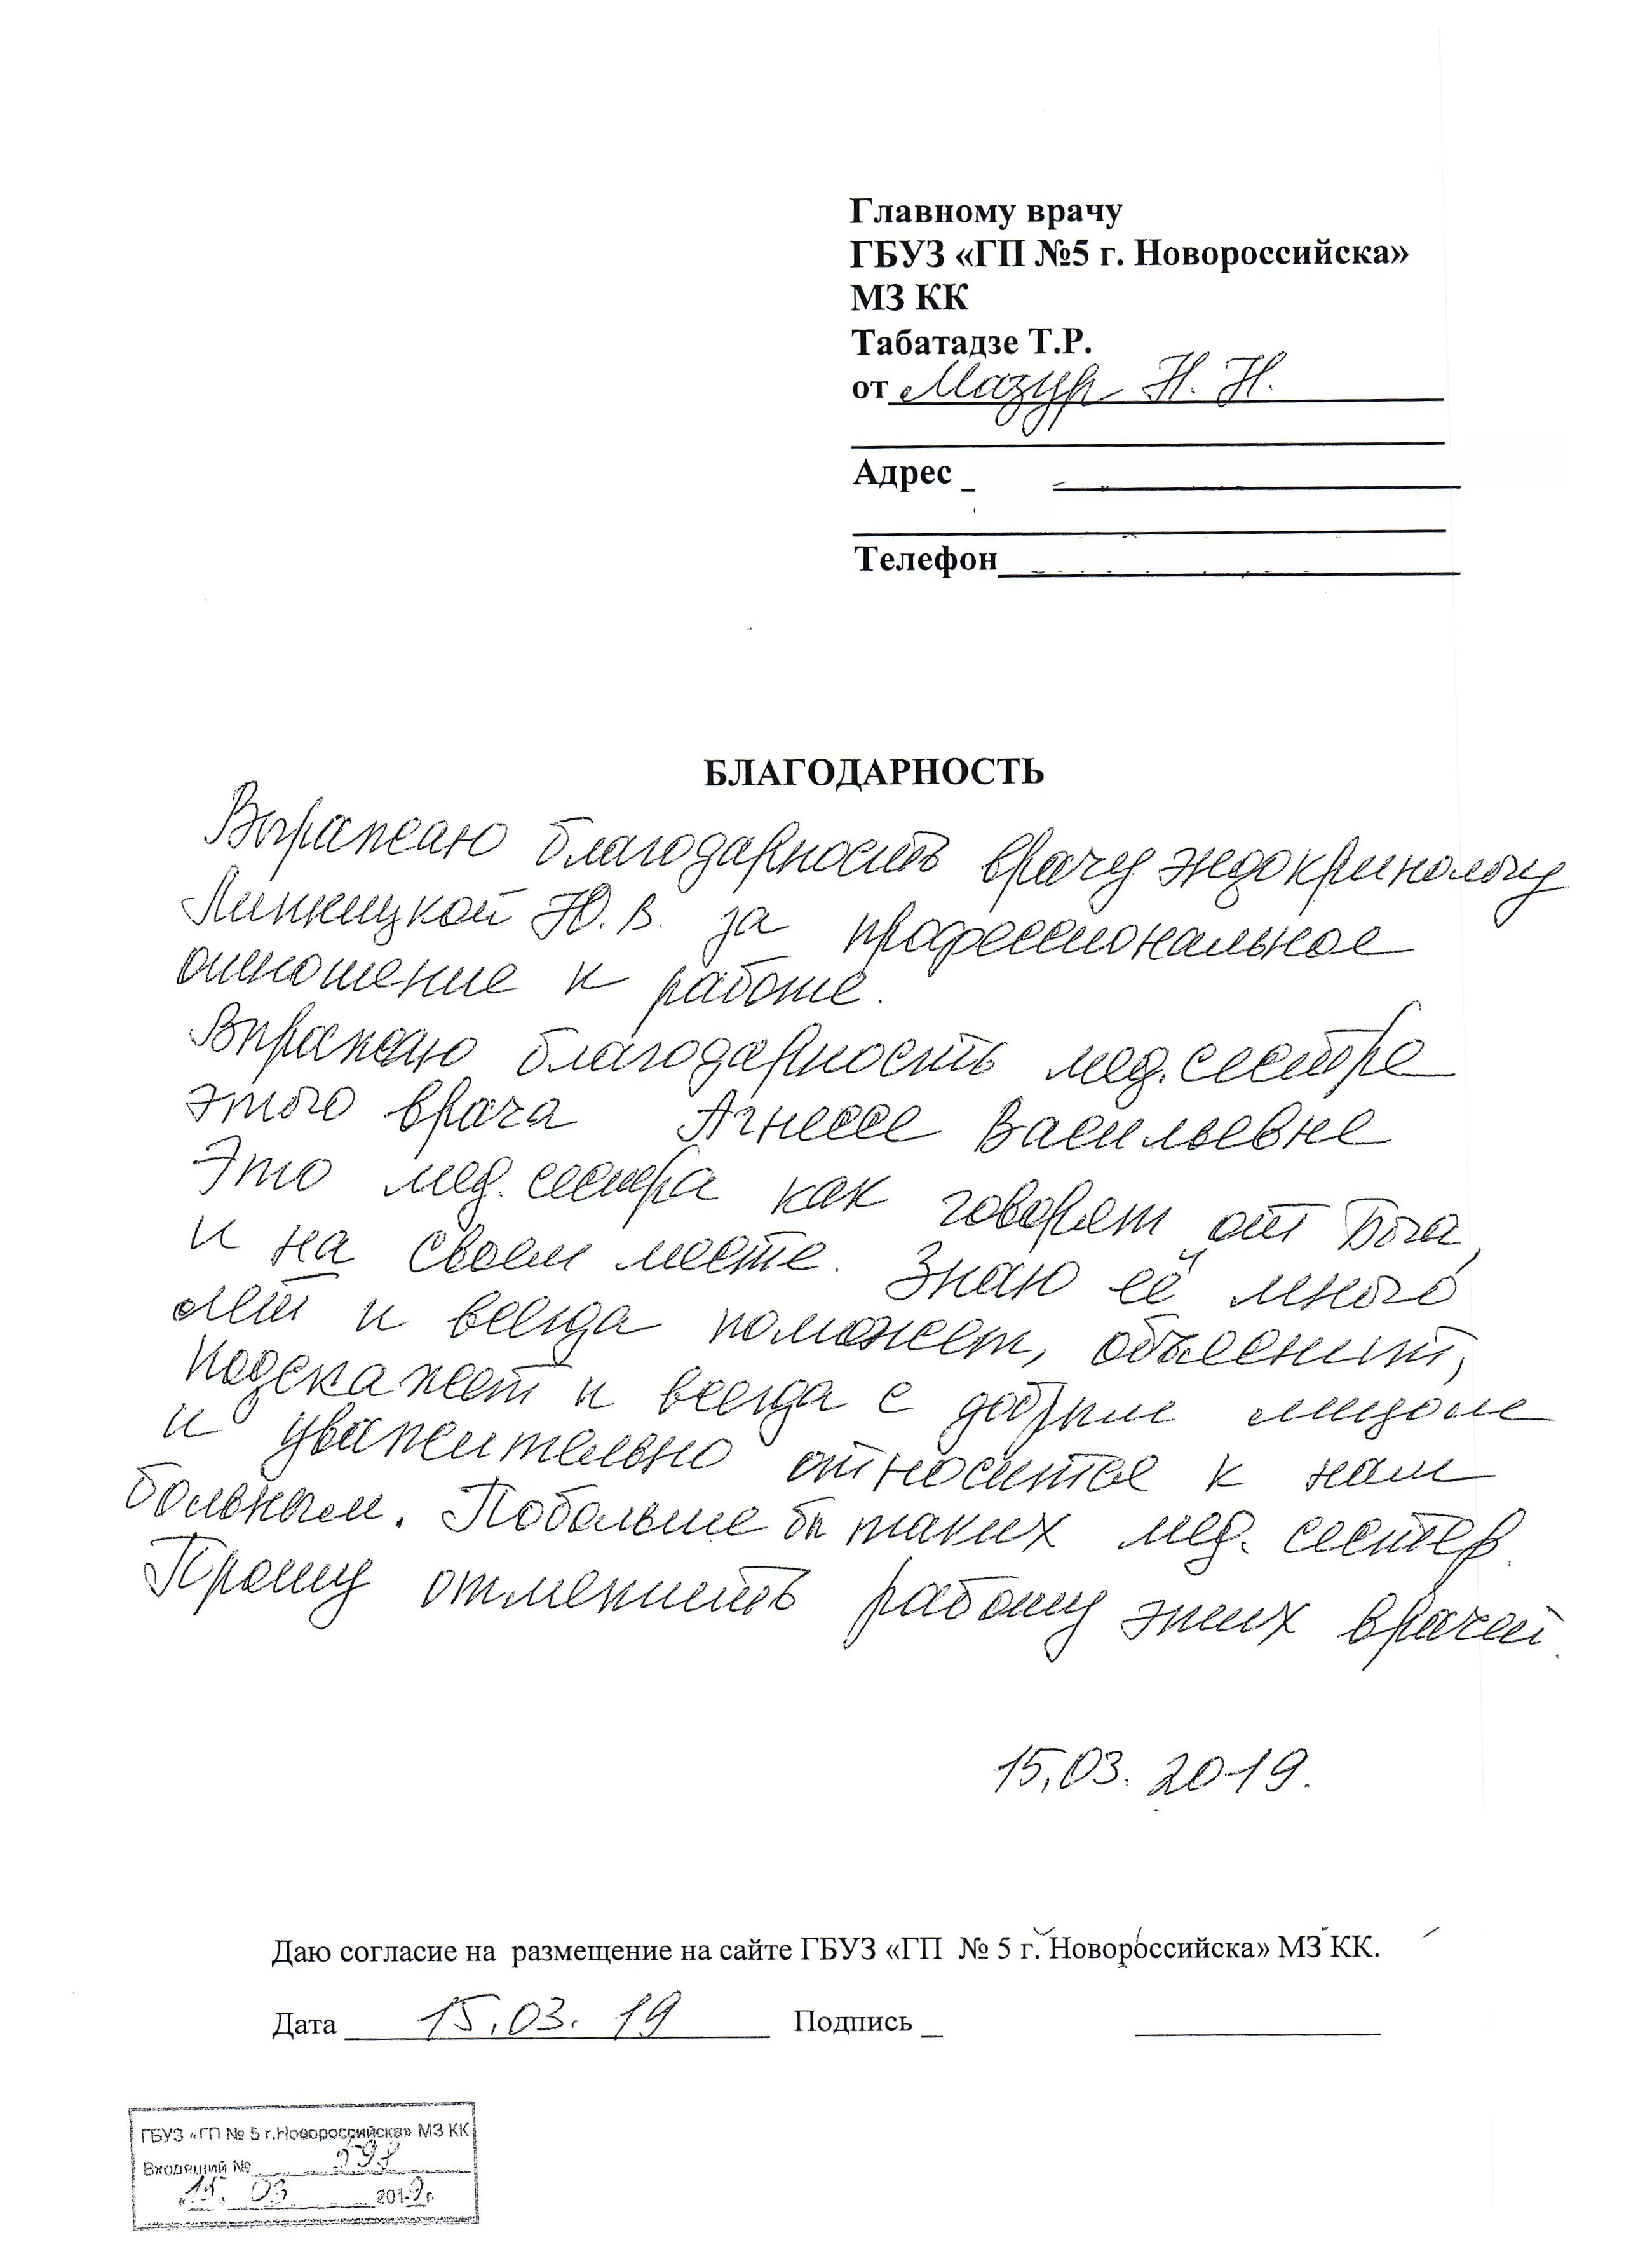 Главному врачу
ГБУЗ «ГП №5 г. Новороссийска»
МЗ КК
Табатадзе Т.Р.
от Мазур Н. Н.
Адрес
Телефон
БЛАГОДАРНОСТЬ
Выражаю благодарность врачу эндокринологу
Линницкой Ю. В. за профессиональное
отношение к работе.
Выражаю благодарность мед.сестре
этого врача Агнессе Васильевне
Это мед. сестра как говорят от Бога,
и на своем месте. Знаю её много
лет и всегда поможет, объеснит,
подскажет и всегда с добрым лицом
и уважительно относится к нам
больным. Побольше бы таких мед. сестер.
Прошу отменить работу этих врачей.
15.03.2019.
Даю согласие на размещение на сайте ГБУЗ «ГП № 5 г. Новороссийска» МЗ КК.
Дата 15.03.19 Подпись
ГБУЗ «ГП № 5 г.Новороссийска» МЗ КК
Входящий №
«15» 03 2019 г.